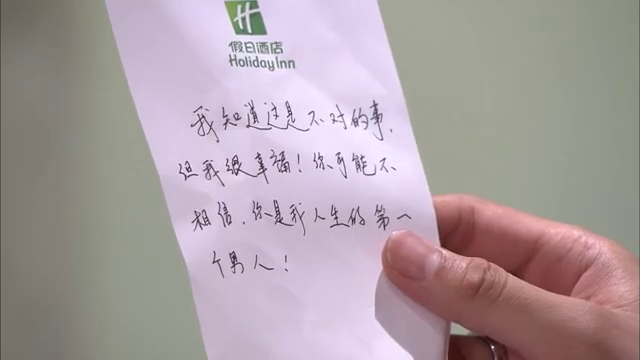 H
假日酒店
Holiday Inn
我知道这是不对的事,
但我很幸福!你可能不
相信,你是我人生的第一
个男人!